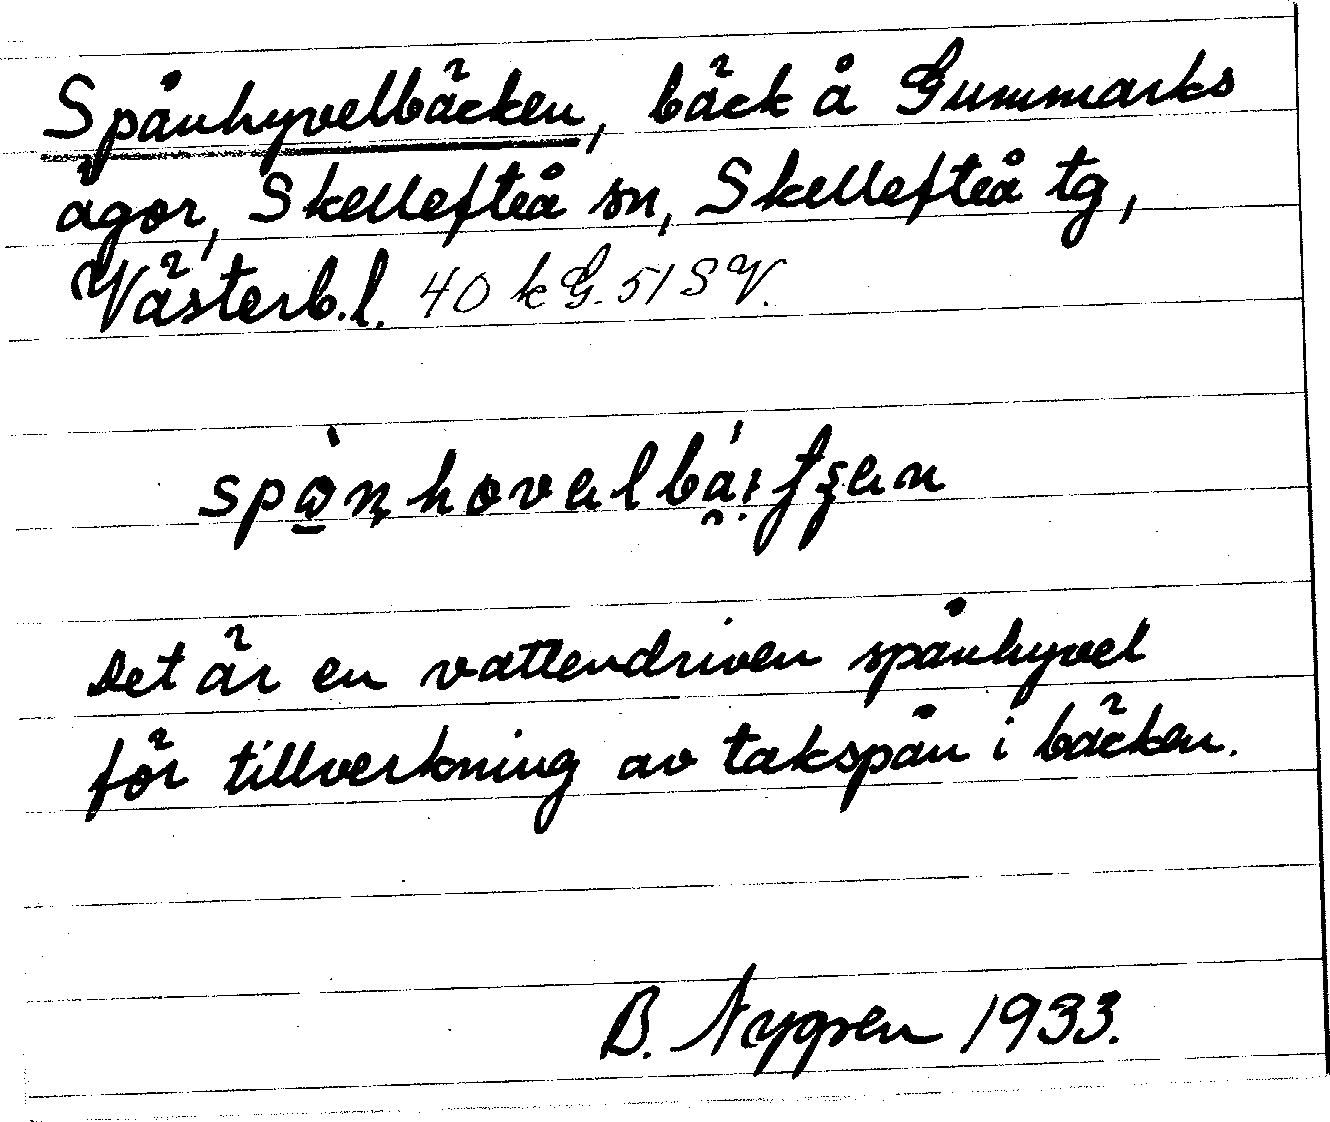 Spånhyvelbäcken, bäck å Gummarks
ägor, Skellefteå sn, Skellefteå tg,
Västerb.l. 40 k G. 51 S V.
Det är en vattendriven spånhyvel
för tillverkning av takspån i bäcken.
B. Nygren 1933.